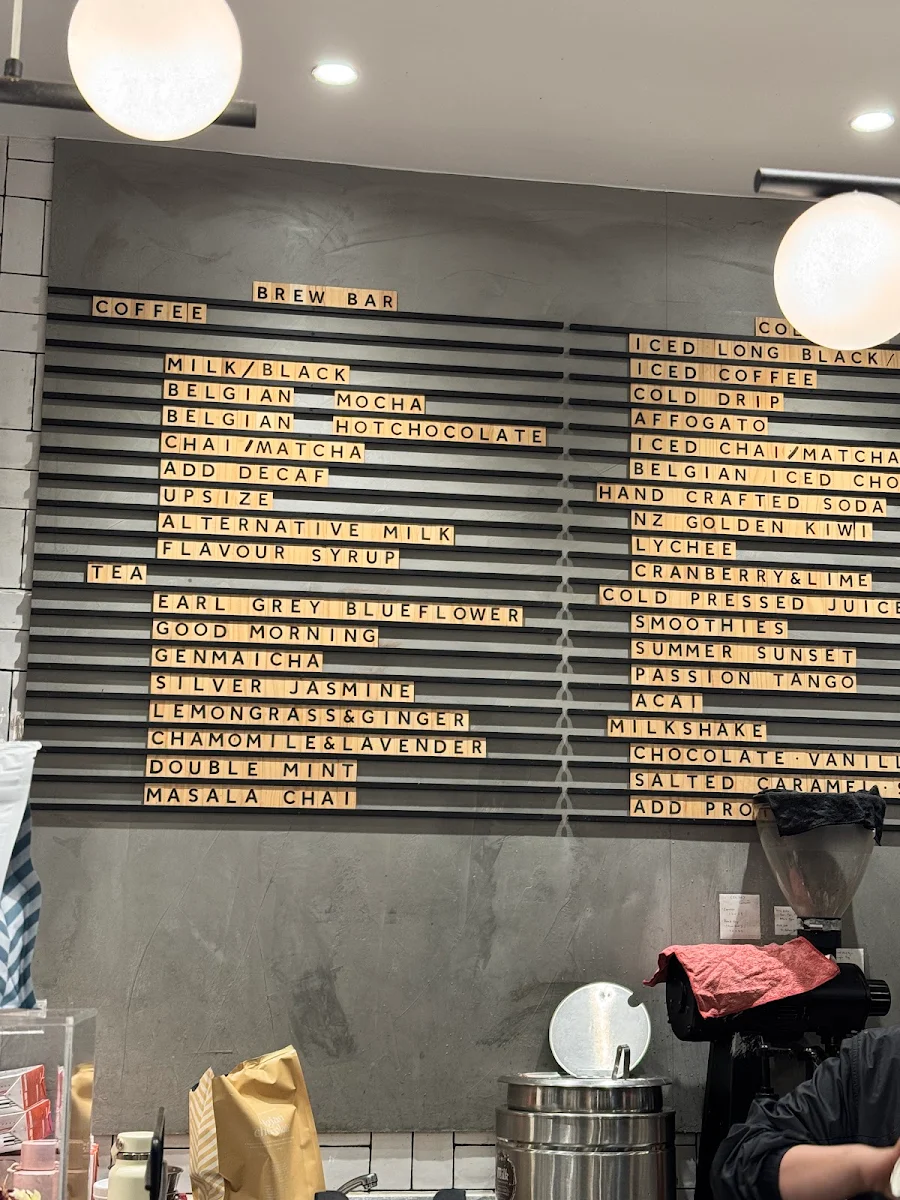 BREW BAR
COFFEE
MILK/BLACK
BELGIAN MOCHA
BELGIAN HOTCHOCOLATE
CHAI/MATCHA
ADD DECAF
UPSIZE
ALTERNATIVE MILK
FLAVOUR SYRUP
TEA
EARL GREY BLUEFLOWER
GOOD MORNING
GENMAICHA
SILVER JASMINE
LEMONGRASS&GINGER
CHAMOMILE&LAVENDER
DOUBLE MINT
MASALA CHAI
ICED LONG BLACK/
ICED COFFEE
COLD DRIP
AFFOGATO
ICED CHAI/MATCHA
BELGIAN ICED CHO
HAND CRAFTED SODA
NZ GOLDEN KIWI
LYCHEE
CRANBERRY&LIME
COLD PRESSED JUICE
SMOOTHIES
SUMMER SUNSET
PASSION TANGO
ACAI
MILKSHAKE
CHOCOLATE·VANILL
SALTED CARAMEL·
ADD PRO